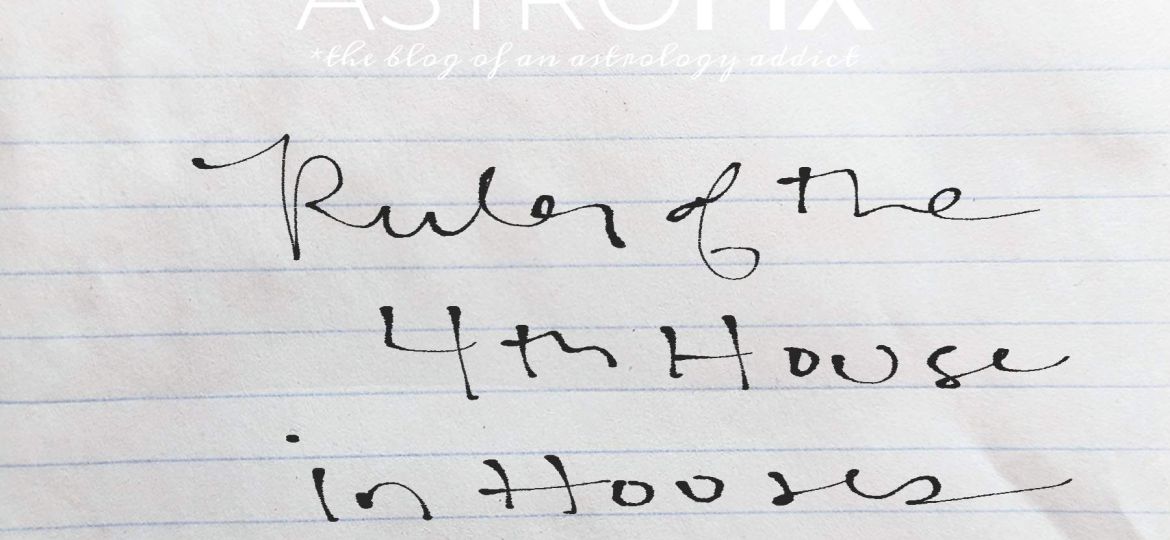 ASTROFIX
*the blog of an astrology addict
Ruler of the
4th House
in Houses